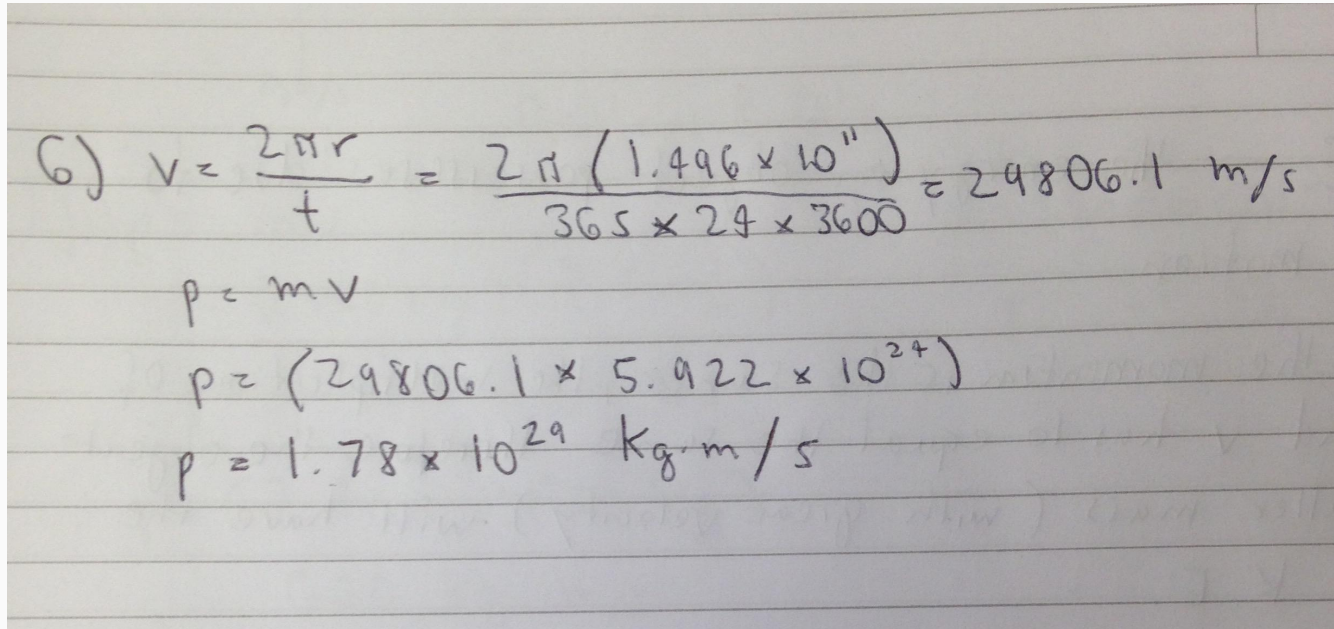 6) v = 2πr / t = 2π(1.496 × 10¹¹) / 365 × 24 × 3600 = 29806.1 m/s
p = mv
p = (29806.1 × 5.922 × 10²⁴)
p = 1.78 × 10²⁹ kg·m/s